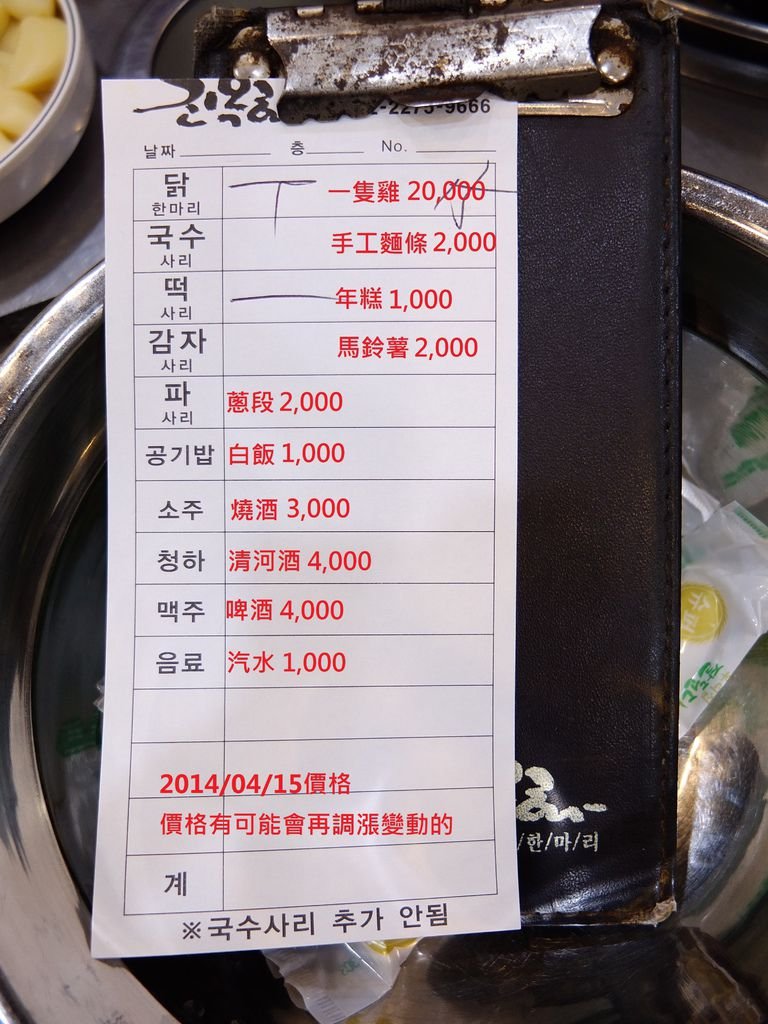 진옥화
2-2275-9666
날짜 층 No.
닭 一隻雞 20,000
한마리
국수 手工麵條 2,000
사리
떡 年糕 1,000
사리
감자 馬鈴薯 2,000
사리
파 蔥段 2,000
사리
공기밥 白飯 1,000
소주 燒酒 3,000
청하 清河酒 4,000
맥주 啤酒 4,000
음료 汽水 1,000
2014/04/15價格
價格有可能會再調漲變動的
계
※국수사리 추가 안됨
/한/마/리